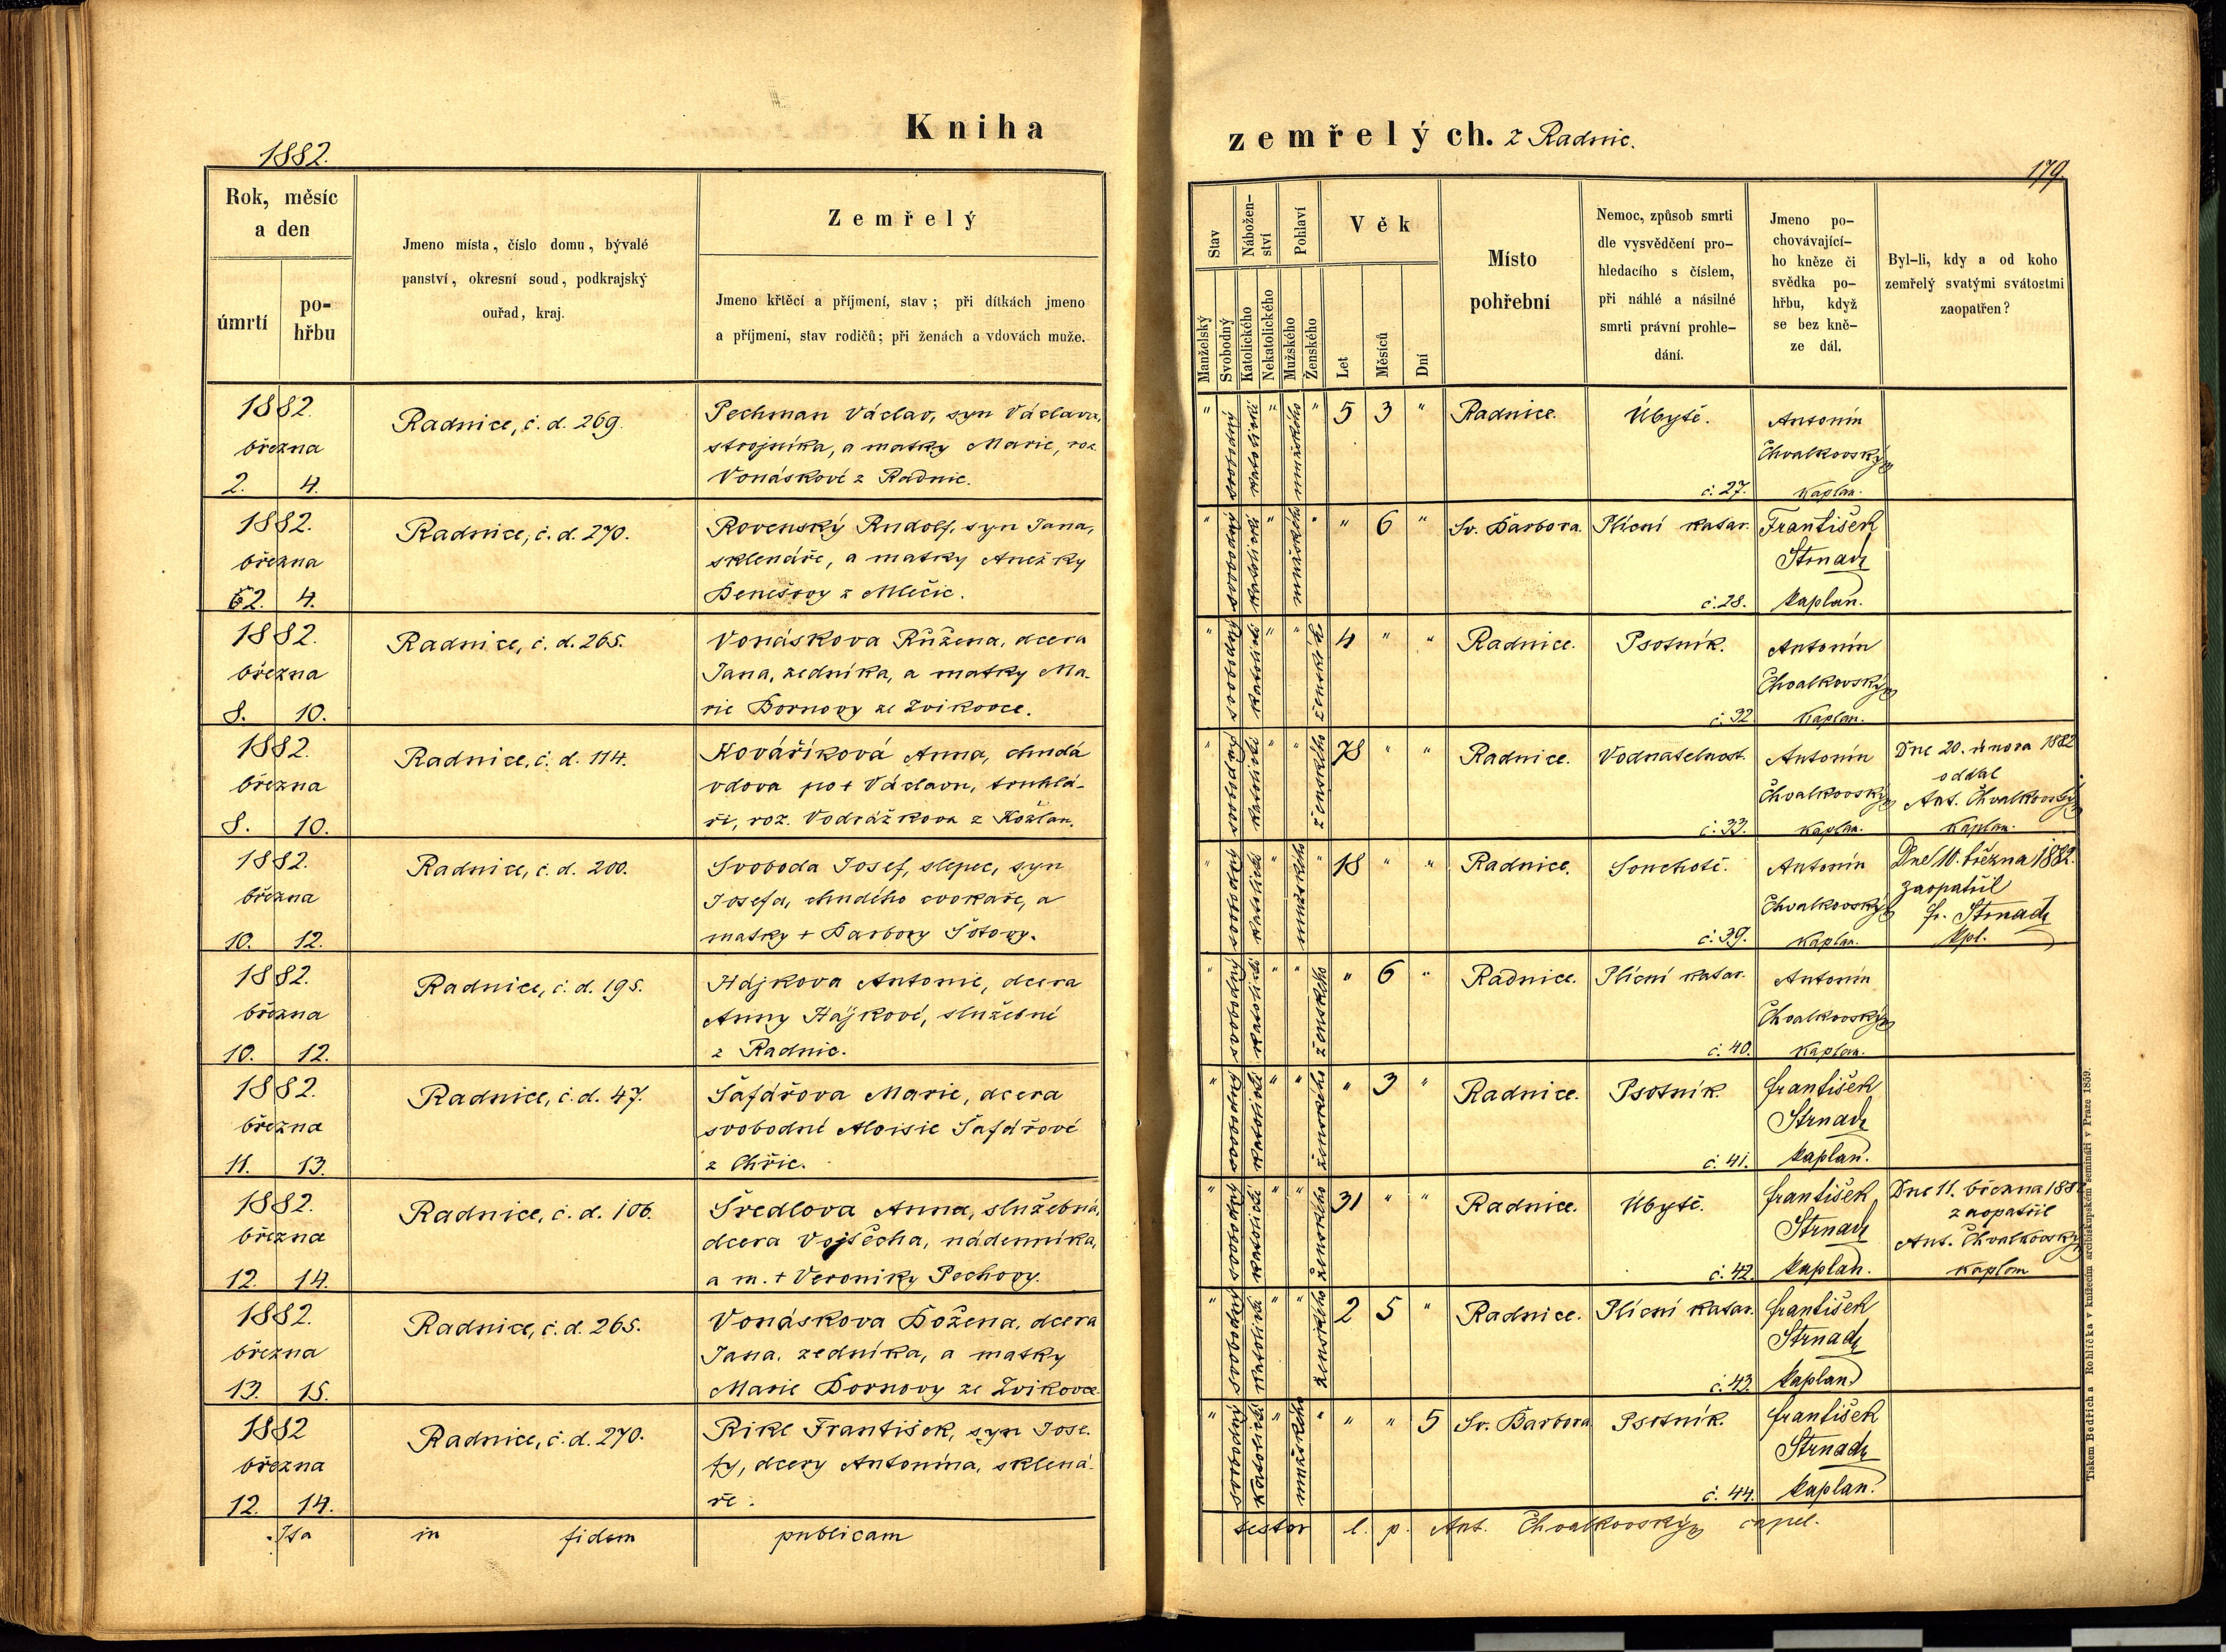 Kniha
zemřelých. z Radnic.
1882.
179.
Rok, měsíc
a den
úmrtí
po-
hřbu
Jmeno místa, číslo domu, bývalé
panství, okresní soud, podkrajský
ouřad, kraj.
Zemřelý
Jmeno křtěcí a příjmení, stav; při dítkách jmeno
a příjmení, stav rodičů; při ženách a vdovách muže.
Stav
Nábožen-
ství
Pohlaví
Věk
Manželský
Svobodný
Katolického
Nekatolického
Mužského
Ženského
Let
Měsíců
Dní
Místo
pohřební
Nemoc, způsob smrti
dle vysvědčení pro-
hledacího s číslem,
při náhlé a násilné
smrti právní prohle-
dání.
Jmeno po-
chovávající-
ho kněze či
svědka po-
hřbu, když
se bez kně-
ze dál.
Byl-li, kdy a od koho
zemřelý svatými svátostmi
zaopatřen?
1882.
března
2. 4.
Radnice, č. d. 269.
Pechman Václav, syn Václava,
strojníka, a matky Marie, roz.
Vonáskové z Radnic.
" svobodný katolické " mužského " 5 3 " Radnice. Úbytě.
č. 27.
Antonín
Chvalkovský
kaplan.
1882.
března
2. 4.
Radnice, č. d. 270.
Rovenský Rudolf, syn Jana,
sklenáře, a matky Anežky
Benešovy z Mlečic.
" svobodný katolické " mužského " " 6 " Sv. Barbora. Plícní katar.
č. 28.
František
Strnad
kaplan.
1882.
března
8. 10.
Radnice, č. d. 265.
Vonáskova Růžena, dcera
Jana, zedníka, a matky Ma-
rie Bornovy ze Zvikovce.
" svobodný katolické " " ženského 4 " " Radnice. Psotník.
č. 32
Antonín
Chvalkovský
kaplan.
1882.
března
8. 10.
Radnice, č. d. 114.
Kováříková Anna, chudá
vdova po + Václavu, truhlá-
ři, roz. Vodrážkova z Kožlan.
" svobodný katolické " " ženského 78 " " Radnice. Vodnatelnost.
č. 33.
Antonín
Chvalkovský
kaplan.
Dne 20. února 1882
oddal
Ant. Chvalkovský
kaplan.
1882.
března
10. 12.
Radnice, č. d. 200.
Svoboda Josef, slepec, syn
Josefa, chudého cvokaře, a
matky + Barbory Šotovy.
" svobodný katolické " mužského " 18 " " Radnice. Souchotě.
č. 39.
Antonín
Chvalkovský
kaplan.
Dne 10. března 1882.
zaopatřil
Fr. Strnad
kpl.
1882.
března
10. 12.
Radnice, č. d. 195.
Hájkova Antonie, dcera
Anny Hájkové, služebné
z Radnic.
" svobodný katolické " " ženského " 6 " Radnice. Plícní katar.
č. 40.
Antonín
Chvalkovský
kaplan.
1882.
března
11. 13.
Radnice, č. d. 47.
Šafářova Marie, dcera
svobodné Aloisie Šafářové
z Chříc.
" svobodný katolické " " ženského " 3 " Radnice. Psotník.
č. 41.
František
Strnad
kaplan.
1882.
března
12. 14.
Radnice, č. d. 106.
Šredlova Anna, služebná,
dcera Vojtěcha, nádenníka,
a m. + Veroniky Pechovy.
" svobodný katolické " " ženského 31 " " Radnice. Úbytě.
č. 42.
František
Strnad
kaplan.
Dne 11. března 1882
zaopatřil
Ant. Chvalkovský
kaplan
1882.
března
13. 15.
Radnice, č. d. 265.
Vonáskova Božena, dcera
Jana, zedníka, a matky
Marie Bornovy ze Zvikovce.
" svobodný katolické " " ženského 2 5 " Radnice. Plícní katar.
č. 43.
František
Strnad
kaplan
1882
března
12. 14.
Radnice, č. d. 270.
Rikl František, syn Jose-
fy, dcery Antonína, sklená-
ře.
" svobodný katolické " mužského " " " 5 Sv. Barbora Psotník.
č. 44.
František
Strnad
kaplan.
Ita in fidem publicam
testor l. p. Ant. Chvalkovský capel.
Tiskem Bedřicha Rohlíčka v knížecím arcibiskupském semináři v Praze 1859.